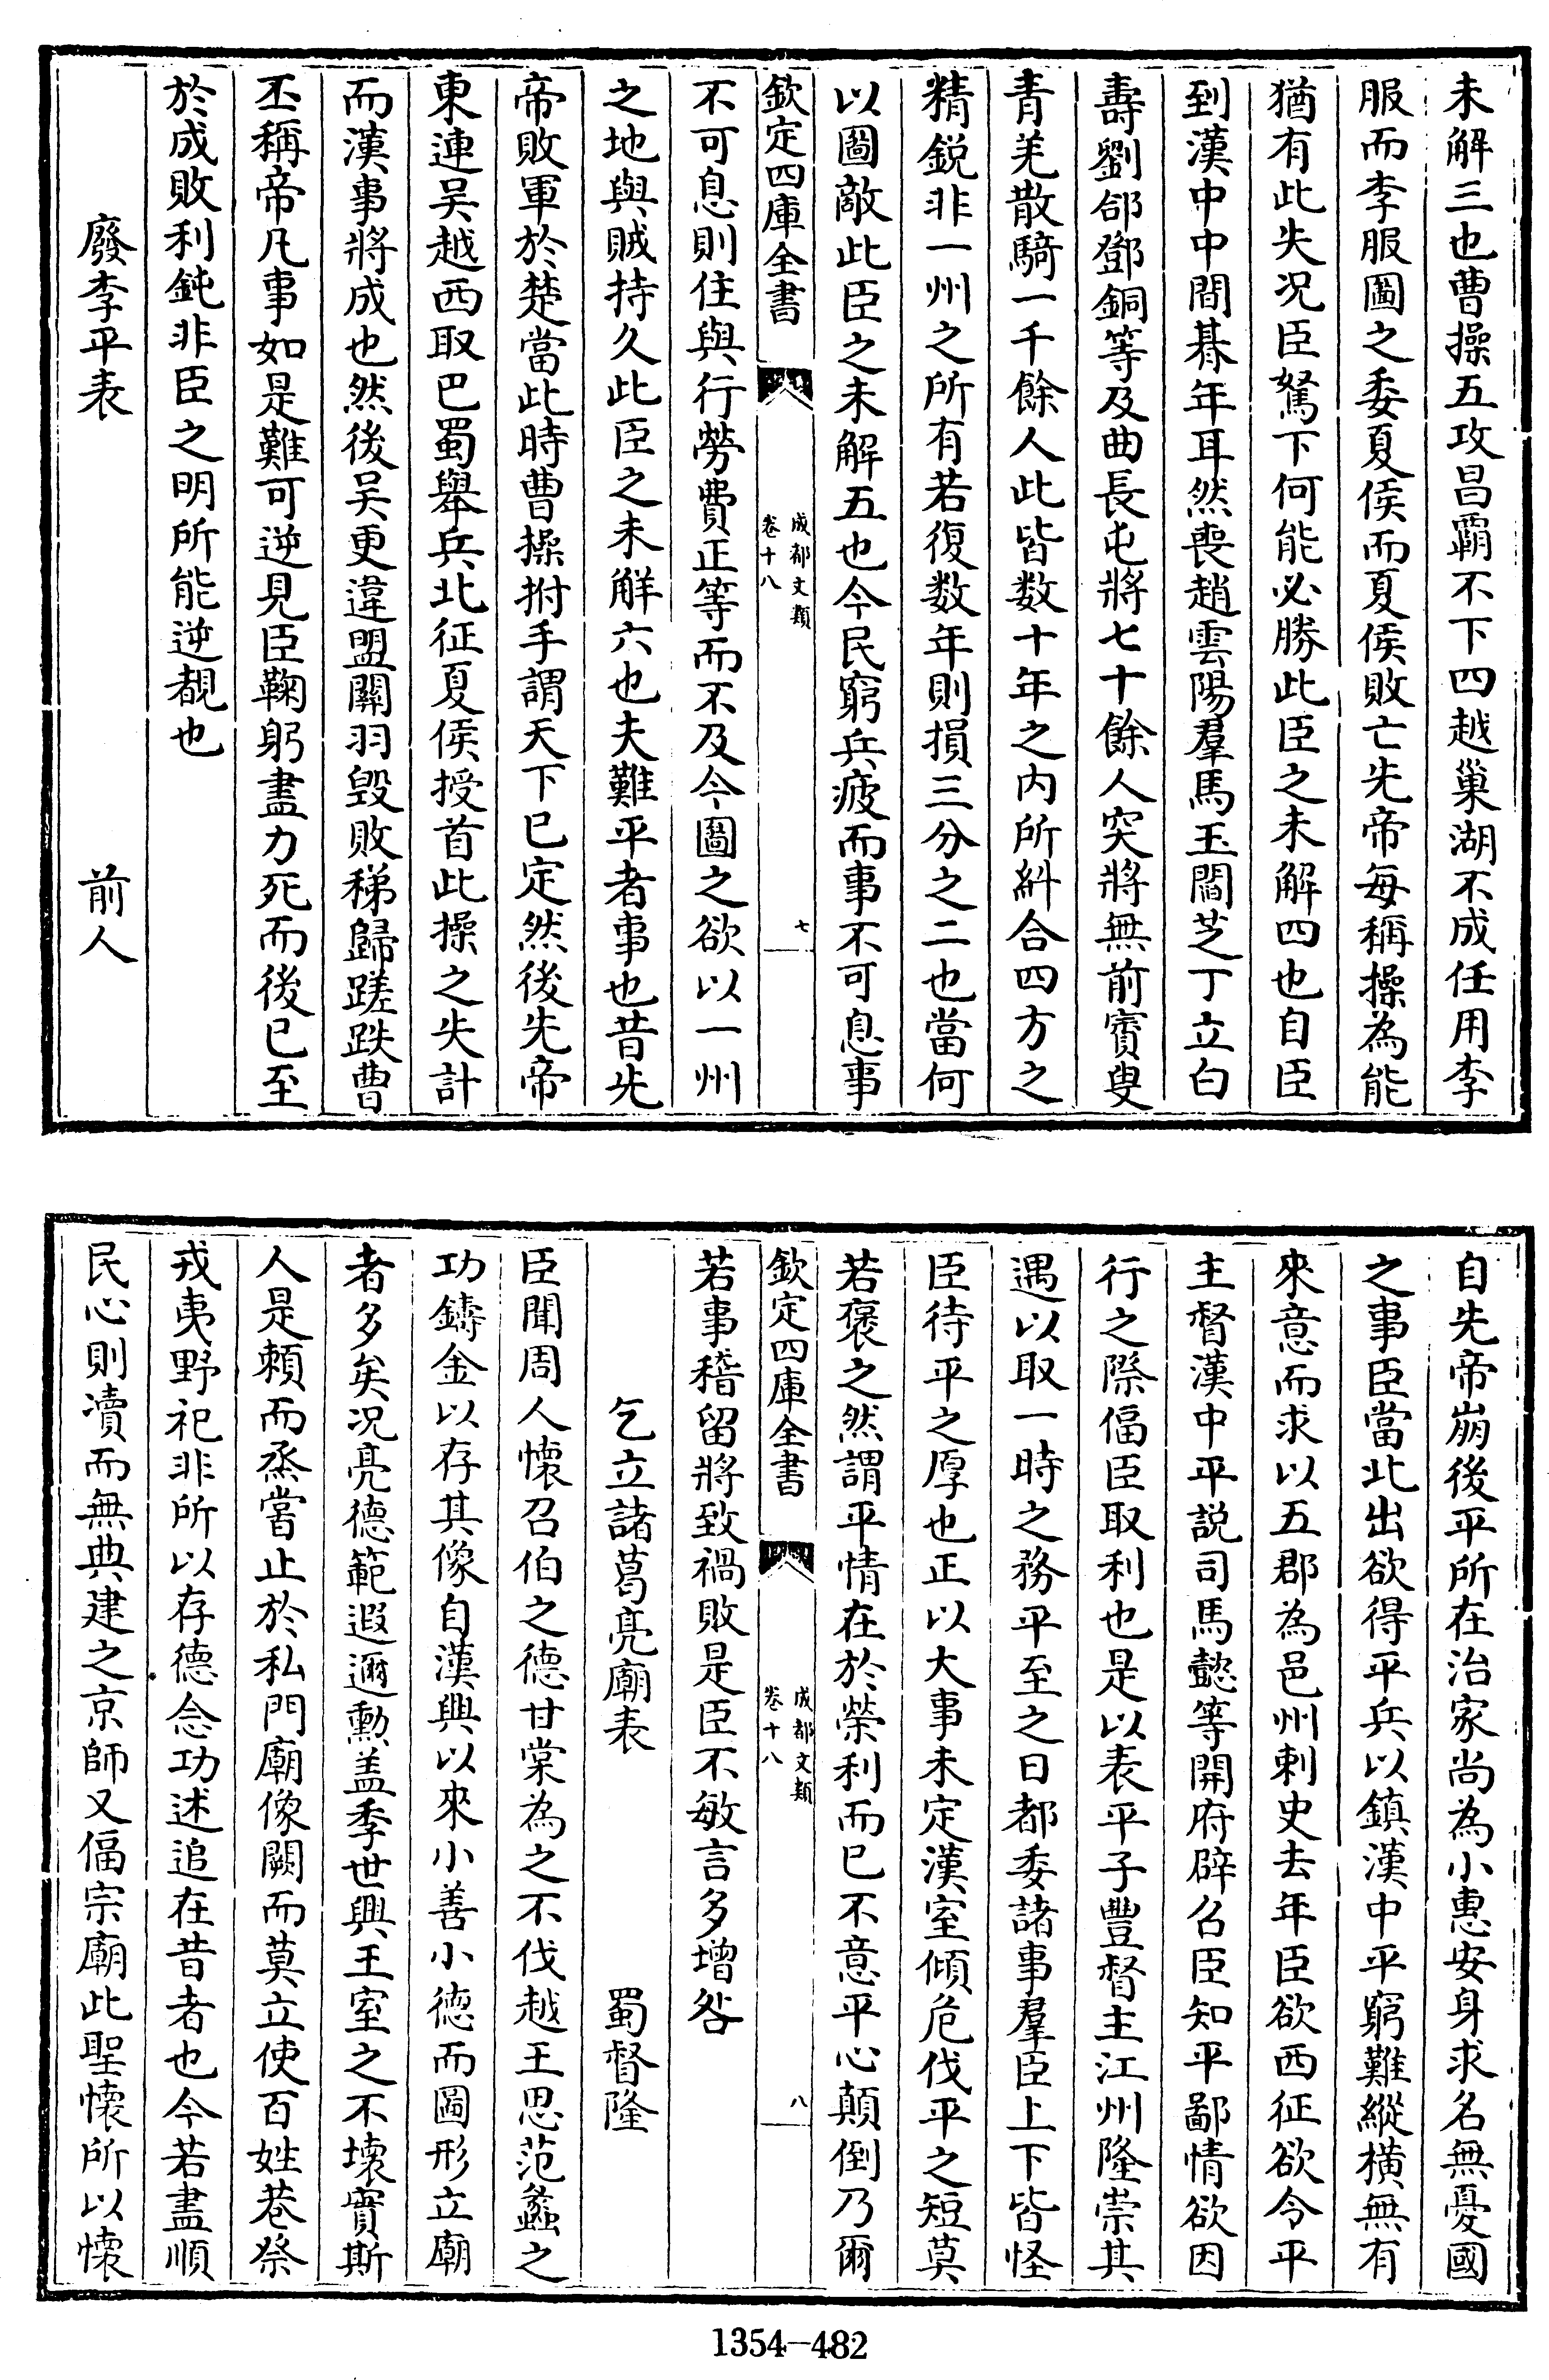 未解三也曹操五攻昌霸不下四越巢湖不成任用李
服而李服圖之委夏侯而夏侯敗亡先帝每稱操為能
猶有此失况臣駑下何能必勝此臣之未解四也自臣
到漢中中間朞年耳然喪趙雲陽羣馬玉閻芝丁立白
壽劉郃鄧銅等及曲長屯將七十餘人突將無前賨叟
青羌散騎一千餘人此皆数十年之内所糾合四方之
精鋭非一州之所有若復数年則損三分之二也當何
以圖敵此臣之未解五也今民窮兵疲而事不可息事
欽定四庫全書
成都文類
卷十八
七
不可息則住與行勞費正等而不及今圖之欲以一州
之地與賊持久此臣之未解六也夫難平者事也昔先
帝敗軍於楚當此時曹操拊手謂天下已定然後先帝
東連吴越西取巴蜀舉兵北征夏侯授首此操之失計
而漢事將成也然後吴更違盟關羽毁敗稊歸蹉跌曹
丕稱帝凡事如是難可逆見臣鞠躬盡力死而後已至
於成敗利鈍非臣之明所能逆覩也
廢李平表 前人
自先帝崩後平所在治家尚為小惠安身求名無憂國
之事臣當北出欲得平兵以鎮漢中平窮難縱横無有
來意而求以五郡為邑州刺史去年臣欲西征欲令平
主督漢中平説司馬懿等開府辟召臣知平鄙情欲因
行之際偪臣取利也是以表平子豐督主江州隆崇其
遇以取一時之務平至之日都委諸事羣臣上下皆怪
臣待平之厚也正以大事未定漢室傾危伐平之短莫
若褒之然謂平情在於榮利而已不意平心顛倒乃爾
欽定四庫全書
成都文類
卷十八
八
若事稽留將致禍敗是臣不敏言多增咎
乞立諸葛亮廟表 蜀督隆
臣聞周人懷召伯之德甘棠為之不伐越王思范蠡之
功鑄金以存其像自漢興以來小善小德而圖形立廟
者多矣况亮德範遐邇勳盖季世興王室之不壞實斯
人是頼而烝嘗止於私門廟像闕而莫立使百姓巷祭
戎夷野祀非所以存德念功述追在昔者也今若盡順
民心則瀆而無典建之京師又偪宗廟此聖懐所以懐
1354—482